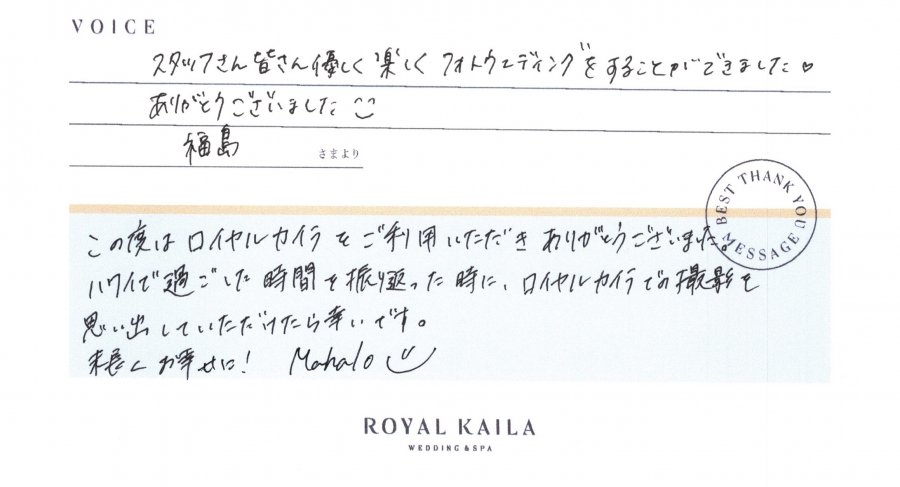 VOICE
スタッフさん皆さん優しく楽しくフォトウェディングをすることができました♡
ありがとうございました
福島 さまより
BEST THANK YOU MESSAGE
この度はロイヤルカイラをご利用いただきありがとうございました。
ハワイで過ごした時間を振り返った時に、ロイヤルカイラでの撮影を
思い出していただけたら幸いです。
末長くお幸せに! Mahalo
ROYAL KAILA
WEDDING & SPA